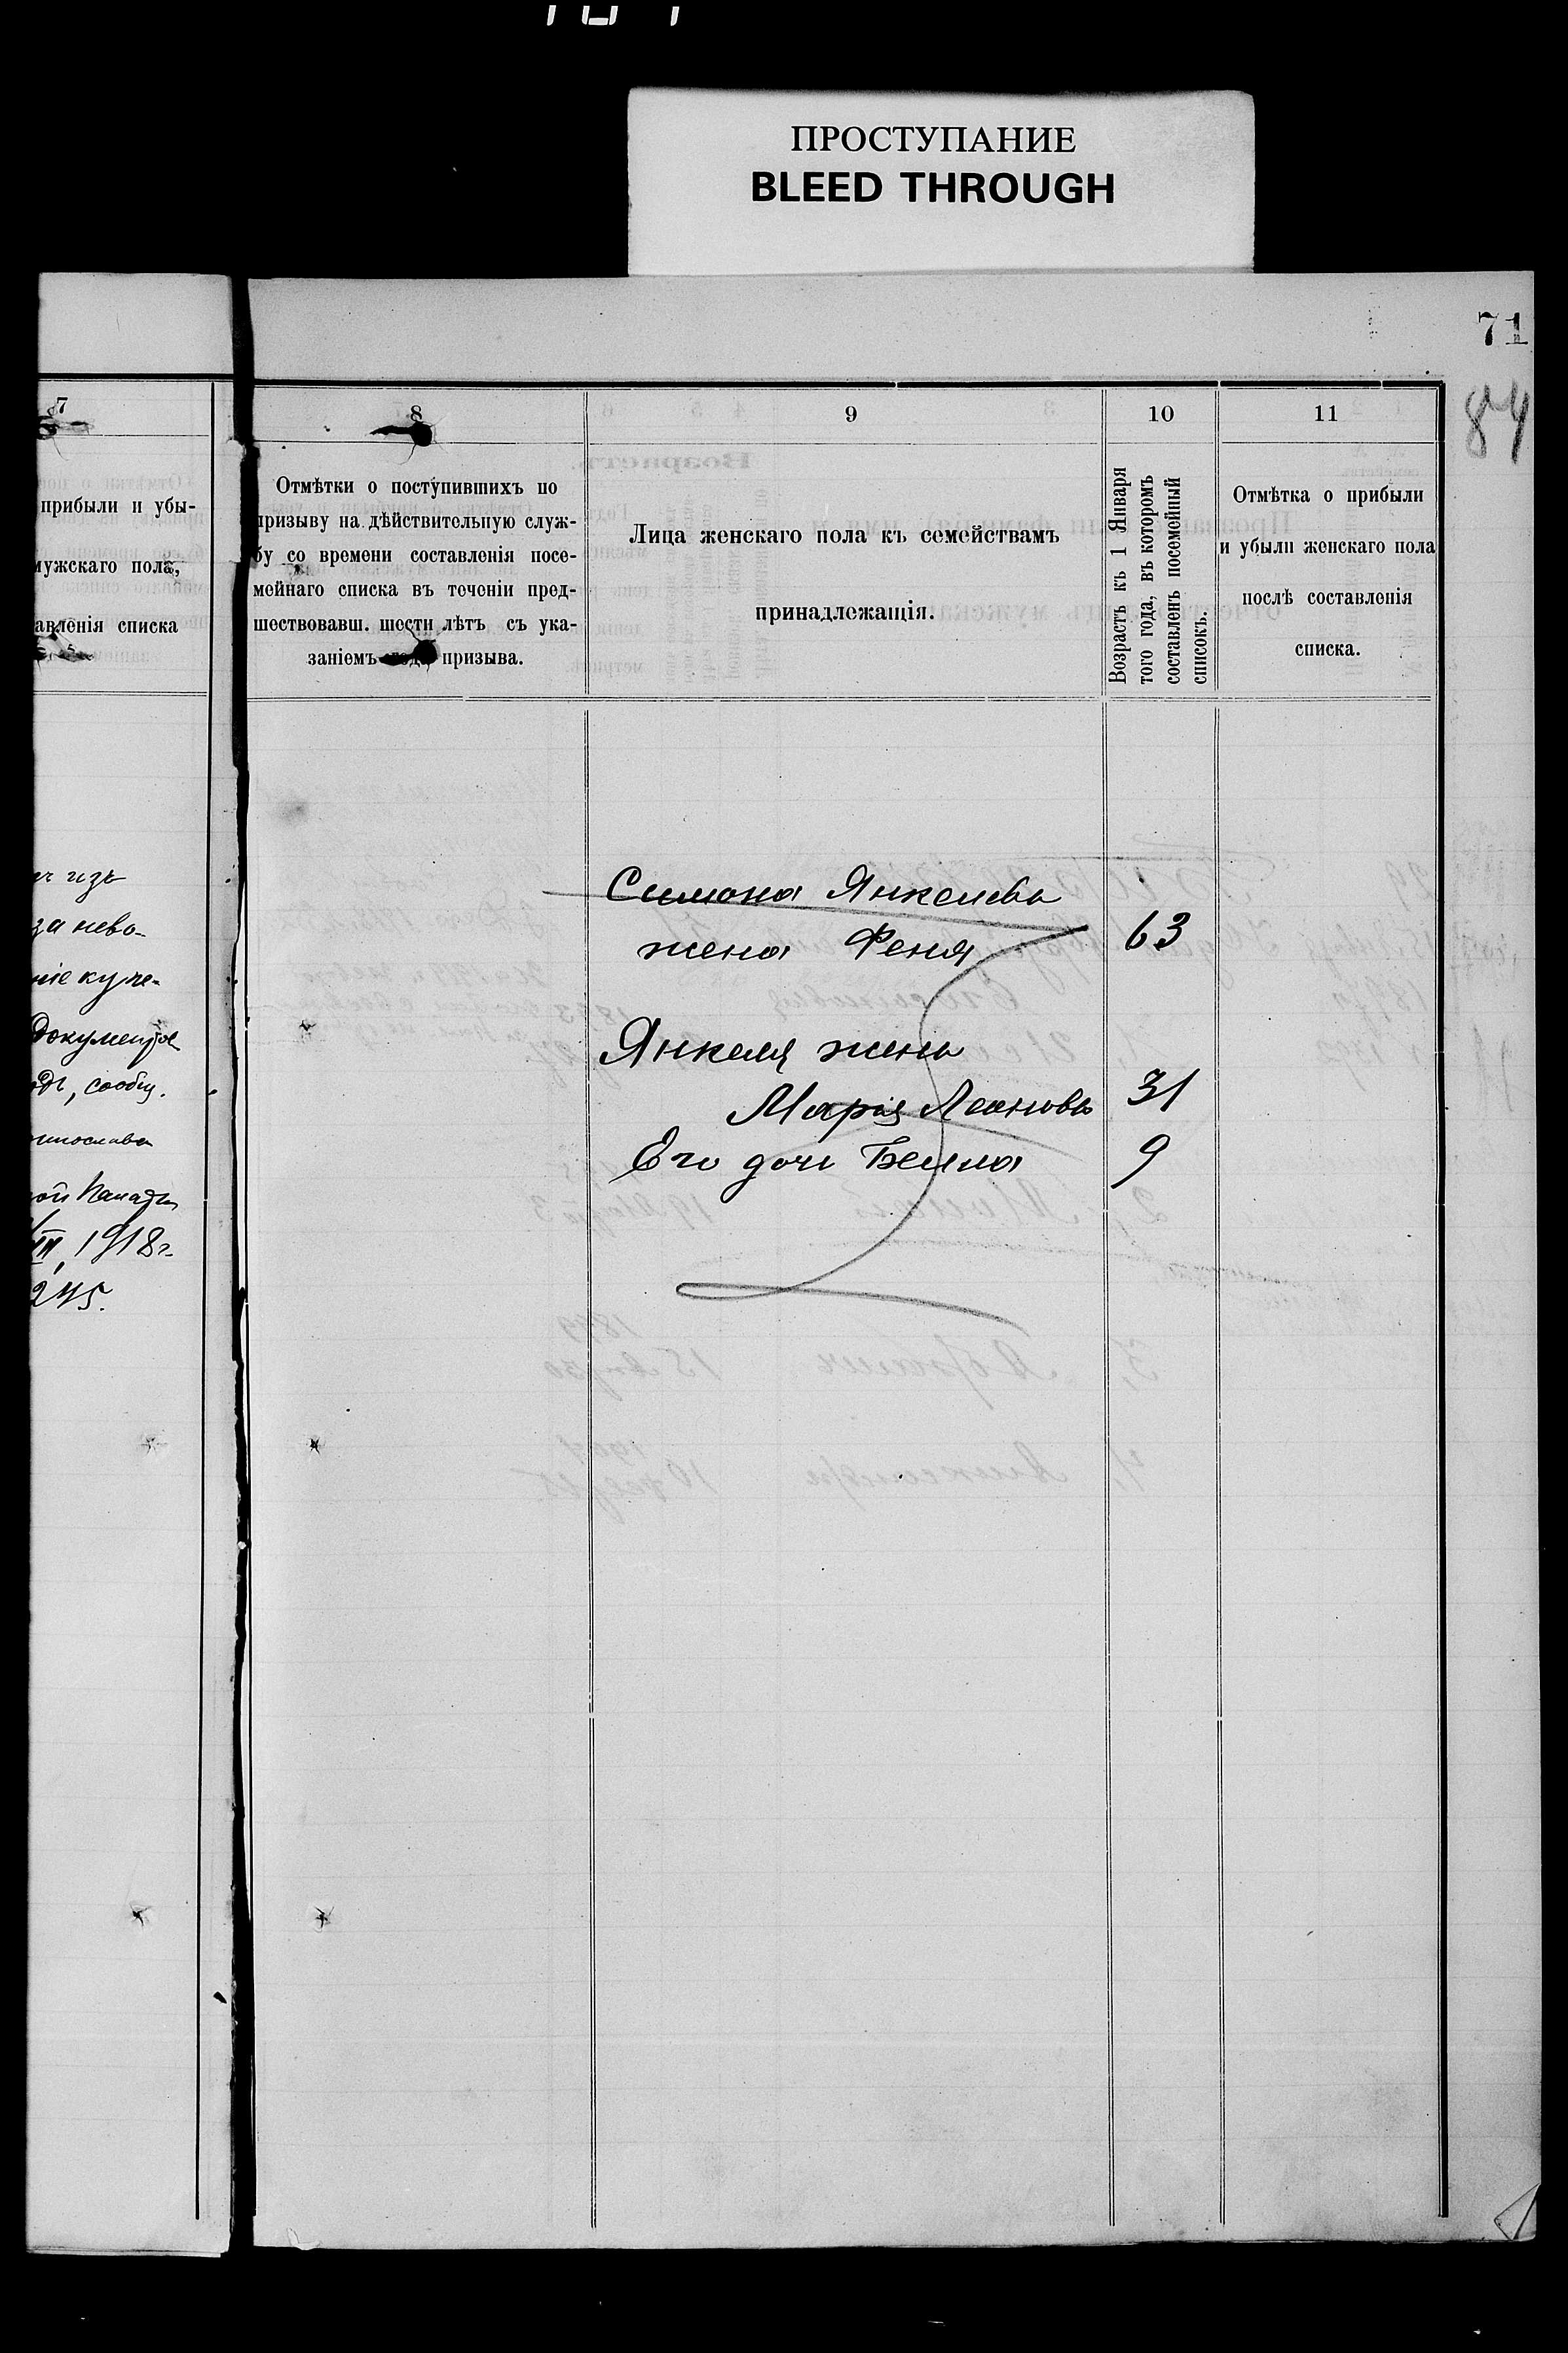 ПРОСТУПАНИЕ
BLEED THROUGH
71
84
7
прибыли и убы-
мужскаго пола,
авленія списка
изъ
за нево-
ніе купе-
документов
одъ, сообщ.
ой Палаты
1918 г.
245.
8
Отмѣтки о поступившихъ по
призыву на дѣйствительную служ-
бу со времени составленія посе-
мейнаго списка въ теченіи пред-
шествовавш. шести лѣтъ съ ука-
заніемъ года призыва.
9
Лица женскаго пола къ семействамъ
принадлежащія.
10
Возрастъ къ 1 Января
того года, въ которомъ
составленъ посемейный
списокъ.
11
Отмѣтка о прибыли
и убыли женскаго пола
послѣ составленія
списка.
Симона Янкелева
жена Феня 63
Янкеля жена
Марія Леонова 31
Его дочь Бейла 9